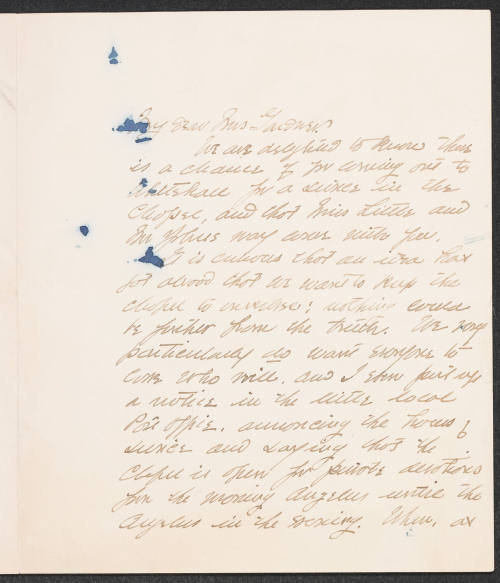 My dear Mrs. Gardner,
We are delighted to know there
is a chance of yr coming out to
Whitehall for a service in the
Chapel, and that Miss Little and
Mr Johns may come with you.
It is curious that an idea has
got abroad that we want to keep the
chapel to ourselves; nothing could
be further from the truth. We very
particularly do want everyone to
come who will, and I even put up
a notice in the little local
Post Office, announcing the hours of
service and saying that the
Chapel is open for private devotions
from the morning Angelus until the
Angelus in the evening. When, as